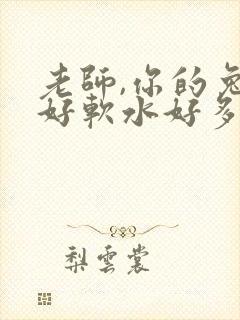 老師,你的兔
好軟水好多
梨雲裳